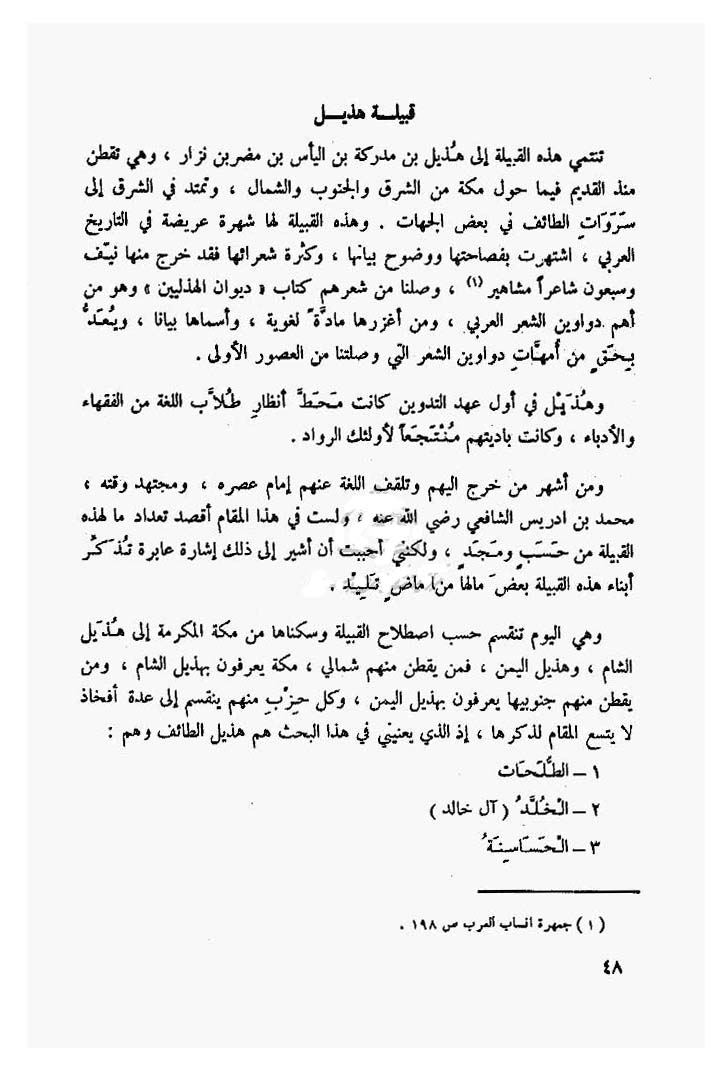 قبيلـــة هذيـــل
تنتمي هذه القبيلة إلى هُذيل بن مدركة بن اليأس بن مضربن نزار ، وهي تقطن
منذ القديم فيما حول مكة من الشرق والجنوب والشمال ، وتمتد في الشرق إلى
سَرَوَاتِ الطائف في بعض الجهات . وهذه القبيلة لها شهرة عريضة في التاريخ
العربي ، اشتهرت بفصاحتها ووضوح بيانها ، وكثرة شعرائها فقد خرج منها نيّف
وسبعون شاعراً مشاهير (١) ، وصلنا من شعرهم كتاب « ديوان الهذليين » وهو من
أهم دواوين الشعر العربي ، ومن أغزرها مادَّةً لغوية ، وأسماها بيانا ، ويُعَدُّ
بِحَقٍ من أُمهَّاتِ دواوين الشعر التي وصلتنا من العصور الأولى .
وهُذَيْل في أول عهد التدوين كانت مَحَطَّ أنظارِ طُلاَّب اللغة من الفقهاء
والأدباء ، وكانت باديتهم مُنْتَجَعاً لأولئك الرواد .
ومن أشهر من خرج اليهم وتلقف اللغة عنهم إمام عصره ، ومجتهد وقته ،
محمد بن ادريس الشافعي رضي الله عنه ، ولست في هذا المقام أقصد تعداد ما لهذه
القبيلة من حَسَبٍ ومَجَدٍ ، ولكنني أحببت أن أشير إلى ذلك إشارة عابرة تُذَكِّرُ
أبناء هذه القبيلة بعضَ مالها من ماضٍ تَلِيْدٍ .
وهي اليوم تنقسم حسب اصطلاح القبيلة وسكناها من مكة المكرمة إلى هُذَيل
الشام ، وهذيل اليمن ، فمن يقطن منهم شمالي ، مكة يعرفون بهذيل الشام ، ومن
يقطن منهم جنوبيها يعرفون بهذيل اليمن ، وكل حِزْبٍ منهم ينقسم إلى عدة أفخاذ
لا يتسع المقام لذكرها ، إذ الذي يعنيني في هذا البحث هم هذيل الطائف وهم :
١ – الطُّلَحَات
٢ – الْخُلَّدُ ( آل خالد )
٣ – الْحَسَاسِنَةُ
( ١ ) جمهرة انساب العرب ص ١٩٨ .
٤٨